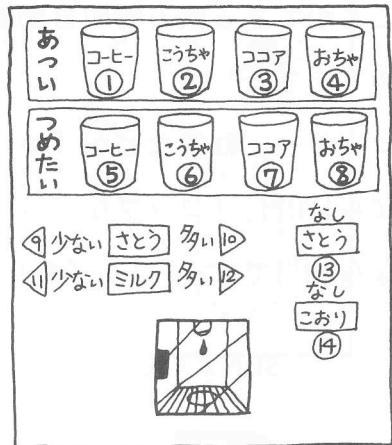 あつい
コーヒー こうちゃ ココア おちゃ
① ② ③ ④
つめたい
コーヒー こうちゃ ココア おちゃ
⑤ ⑥ ⑦ ⑧
9 少ない さとう 多い 10
11 少ない ミルク 多い 12
なし
さとう
⑬
なし
こおり
⑭